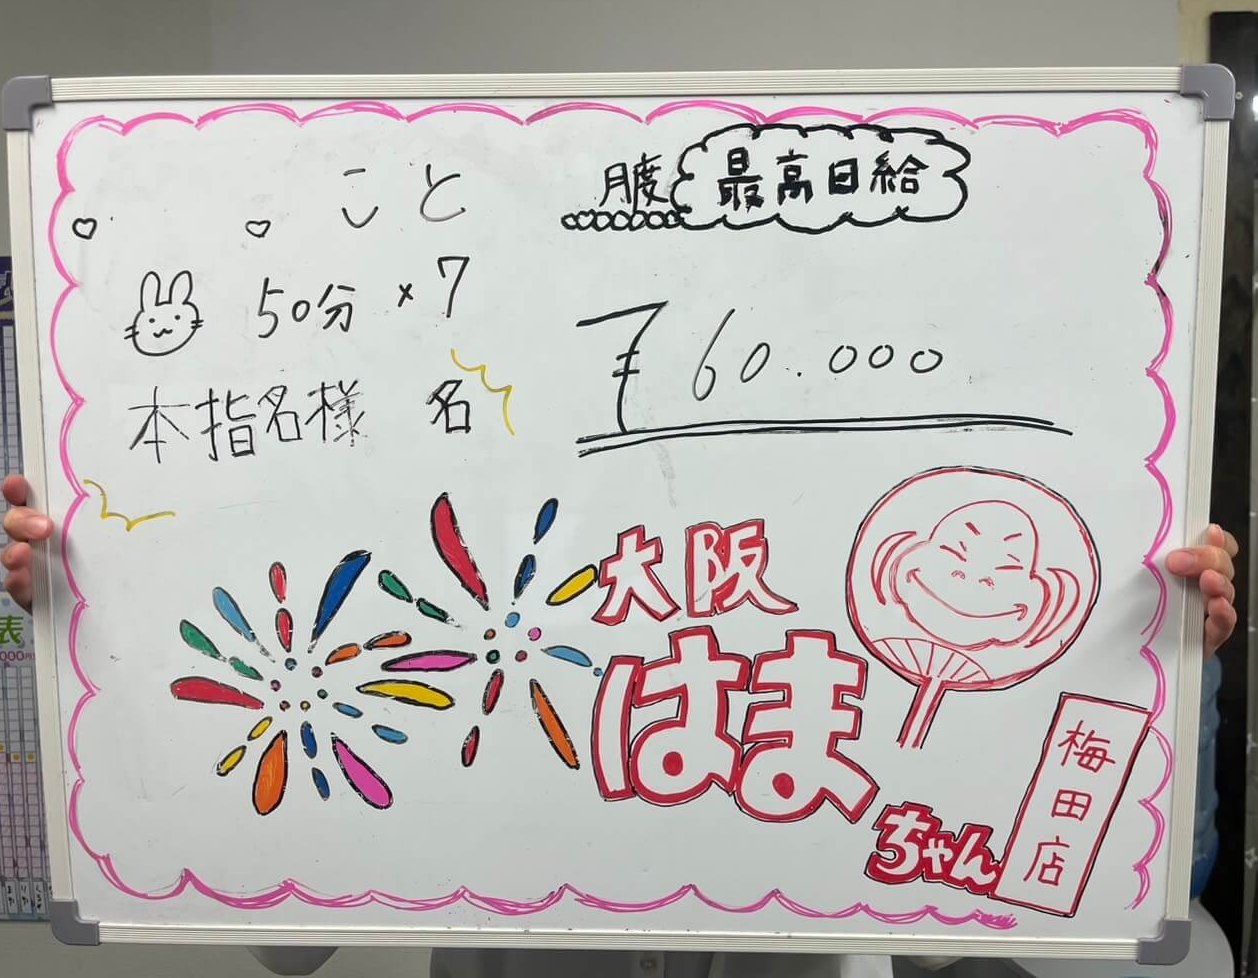 こと
50分×7
本指名様 名
月度 最高日給
¥60.000
大阪
はま
ちゃん
梅田店
表